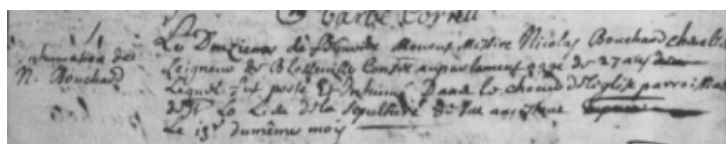 Barbe Cornu
Inhumation de
N. Bouchard
Le Douzieme de fevrier mourut Messire Nicolas Bouchard cheval
seigneur de Blosseville Conser au parlement agé de 27 ans
Lequel fut porté Et Inhumé Dans le choeur de l'eglise parroissiale
de St Lo Lieu de la sepulture de ses ancestres
Le 13e du mesme mois